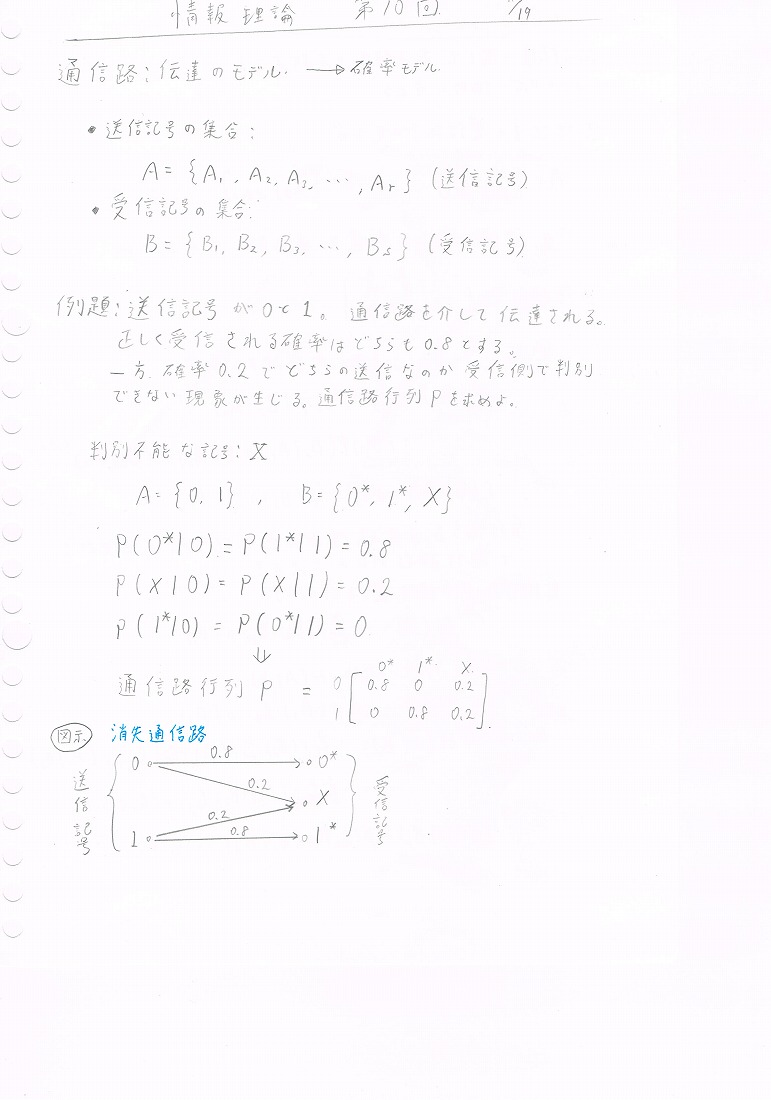 情報理論 第10回 /19
通信路:伝達のモデル. → 確率モデル
• 送信記号の集合:
A = {A₁, A₂, A₃, …, Aᵣ} (送信記号)
• 受信記号の集合:
B = {B₁, B₂, B₃, …, Bₛ} (受信記号)
例題:送信記号が0と1。通信路を介して伝達される。
正しく受信される確率はどちらも0.8とする。
一方、確率0.2でどちらの送信なのか受信側で判別
できない現象が生じる。通信路行列Pを求めよ。
判別不能な記号:X
A = {0, 1} , B = {0*, 1*, X}
P(0*|0) = P(1*|1) = 0.8
P(X|0) = P(X|1) = 0.2
P(1*|0) = P(0*|1) = 0
⇓
0* 1* X
通信路行列 P = 0 [0.8 0 0.2
1 0 0.8 0.2].
図示 消失通信路
送信記号
0 0.8 0*
0.2 X
0.2
1 0.8 1*
受信記号